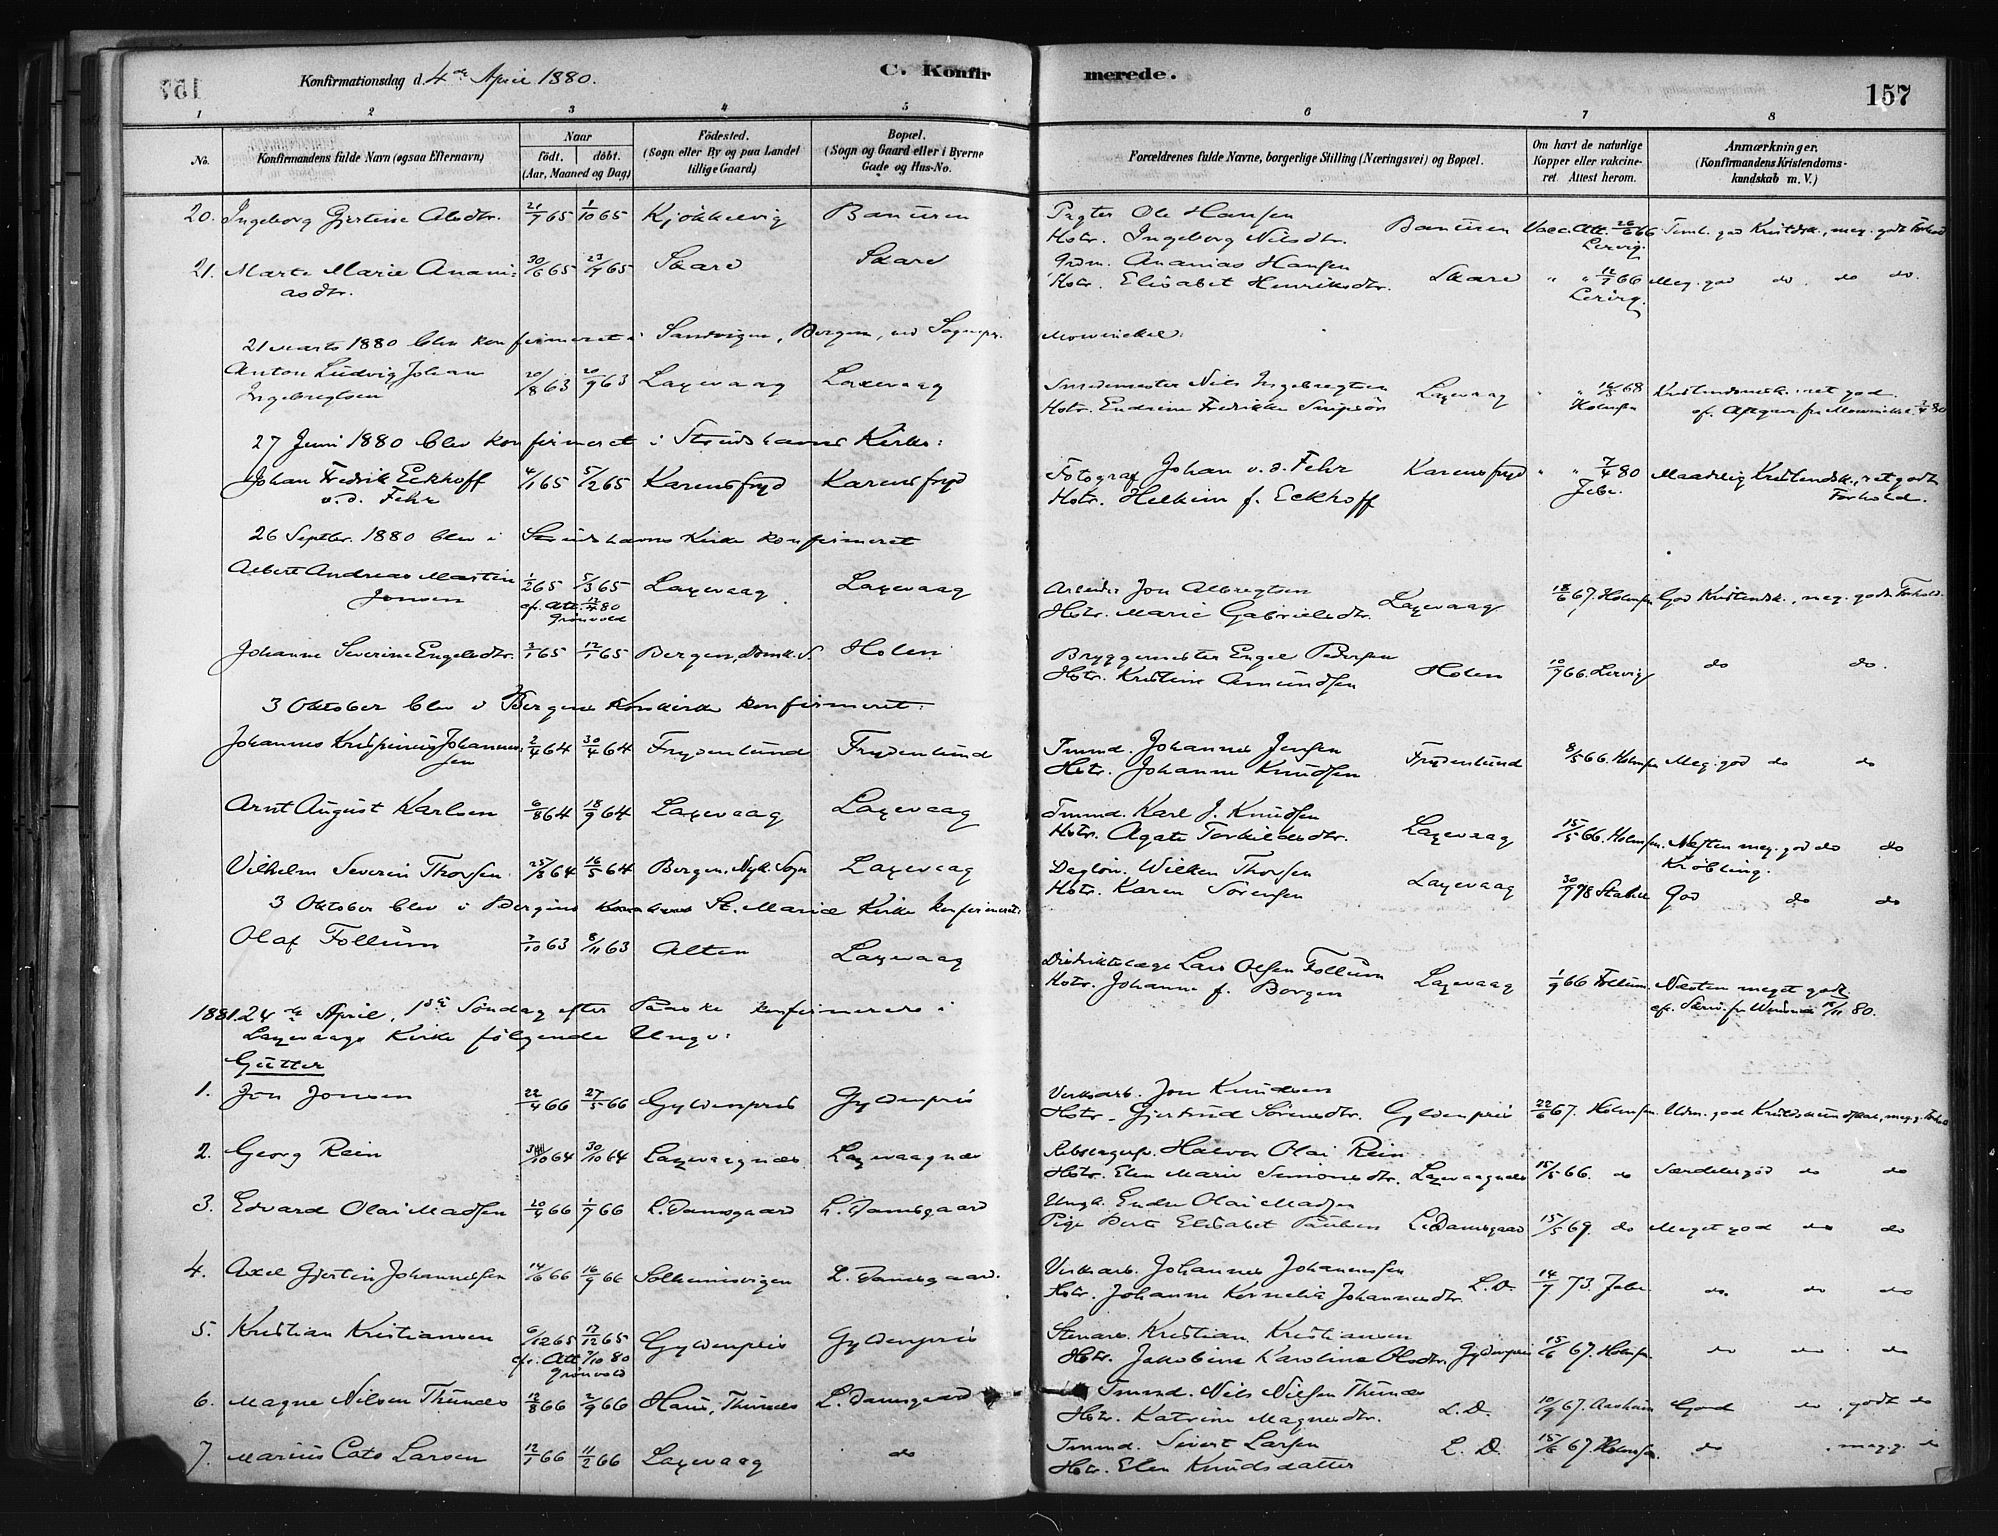 157
Konfirmationsdag d. 4de April 1880.
C. Konfirmerede.
157
1 2 3 4 5 6 7 8
No.
Konfirmandens fulde Navn (ogsaa Efternavn)
Naar født. døbt. (Aar, Maaned og Dag)
Fødested. (Sogn eller By og paa Landet tillige Gaard)
Bopæl. (Sogn og Gaard eller i Byerne Gade og Hus-No.
Forældrenes fulde Navne, borgerlige Stilling (Næringsvei) og Bopæl.
Om havt de naturlige Kopper eller vakcineret Attest herom.
Anmærkninger. (Konfirmandens Kristendomskundskab m. V.)
20. Ingeborg Gjertine Olsdtr. 21/7 65 1/10 65 Kjøkkelvig Banuren Pagter Ole Hansen Hstr. Ingeborg Nilsdtr. Banuren Vacc. Att. 26/6 66 Lervig.
21. Marte Marie Ananiasdtr. 30/6 65 23/7 65 Skare Skare Grdm. Ananias Hansen Hstr. Elisabet Henriksdtr. Skare " " 12/7 66 Lervig. Meg. god do. do do.
21 Marts 1880 blev konfirmeret i Sandvigen, Bergen, ved Sognepr. Mowinckel:
Anton Ludvig Johan Ingebregtsen 20/8 63 20/9 63 Laxevaag Laxevaag Smedemester Nils Ingebregtsen Hstr. Endrine Fredrikke Laxevaag " " 68 Holmsen Kristendomsk. ret god. cf. Mowinckel
27 Juni 1880 blev konfirmeret i Strudshavns Kirke:
Johan Fredrik Eckhoff v.d. Fehr 4/1 65 5/2 65 Karensfryd Karensfryd Fotograf Johan v. d. Fehr Hstr. f. Eckhoff Karensfryd " " 7/4 80 Jebe. Maadelig Kristendsk., ret godt Forhold.
26 Septbr. 1880 blev i Strudshavns Kirke konfirmeret
Albert Andreas Martin Jonsen 1/2 65 5/3 65 cf. Att. 80 Grønvold Laxevaag Laxevaag Arbeider Jon Albregtsen Hstr. Marie Gabrielsdtr. Laxevaag 18/6 67. Holmsen God Kristendsk., meg. godt Forhold.
Johanne Severine Engelsdtr. 2/1 65 12/1 65 Bergen, Domk. S. Holen Bryggermester Engel Pedersen Hstr. Kristine Amundsen Holen 10/7 66. Lervig do do.
3 Oktober blev i Bergens Korskirke konfirmeret:
Johannes Johannessen 2/4 64 30/4 64 Frydenlund Frydenlund Tmmd. Johannes Jensen Hstr. Johanne Knudsen Frydenlund 8/5 66. Holmsen Meg. god do do
Arnt August Karlsen 6/8 64 18/9 64 Laxevaag Laxevaag Tmmd. Karl J. Knudsen Hstr. Agate Torkildsdtr. Laxevaag 15/5 66. Holmsen. Næsten meg. god do do Krøbling.
Vilhelm Severin Thorsen 64 16/5 64 Bergen, Nyk. Sogn Laxevaag Daglon. Wilken Thorsen Hstr. Karen Sørensen Laxevaag 30/9 78 God do do
3 Oktober blev i Bergens St. Mariæ Kirke konfirmeret:
Olaf Follum 3/10 63 8/11 63 Alten Laxevaag Distriktslæge Lars Olsen Follum Hstr. Johanne f. Borgen Laxevaag 1/9 66 Follum. Næsten meget godt. cf. Skriv. fr. 80.
1881. 24de April, 1ste Søndag efter Paaske konfirmeres i Laxevaags Kirke følgende Unge:
Gutter
1. Jon Jonsen 22/4 66 27/5 66 Gyldenpris Gyldenpris Verksarb. Jon Knudsen Hstr. Gjertrud Sørensdtr. Gyldenpris 22/6 67. Holmsen. Udm. god Kristdskundskab, meg. g. Forhold
2. Georg Rein 3/10 64 30/10 64 Laxevaagnæs Laxevaagnæs Halvor Olai Rein Hstr. Elen Marie Simonsdtr. Laxevaagnæs 15/5 66. do Særdeles god do do
3. Edvard Olai Madsen 20/4 66 1/7 66 L. Damsgaard L. Damsgaard Ungk. Endre Olai Madsen Pige Berte Elisabet Paulsen L. Damsgaard 15/5 69. do Meget god do do
4. Axel Gjertin Johannessen 14/6 66 16/9 66 Solheimsvigen L. Damsgaard. Verksarb. Johannes Johannessen Hstr. Johanne Kornelia Johannesdtr. L. D. 14/7 73. Jebe do. do do
5. Kristian Kristiansen 6/12 65 17/12 65 cf. Att. 7/10 80 Grønvold Gyldenpris Gyldenpris Stenarb. Kristian Kristiansen Hstr. Jakobine Karoline Olsdtr. Gyldenpris 15/6 67. Holmsen do do. do
6. Magne Nilsen Thunes 12/8 66 2/9 66 Haus, Thunes L. Damsgaard Tmmd. Nils Nilsen Thunes Hstr. Katrine Magnesdtr. L. D. 10/9 67. God do. godt do
7. Marius Cato Larsen 12/1 66 11/2 66 Laxevaag do Tmmd. Sivert Larsen Hstr. Elen Knudsdatter L. D. 15/6 67. Holmsen. do. meg. g. do